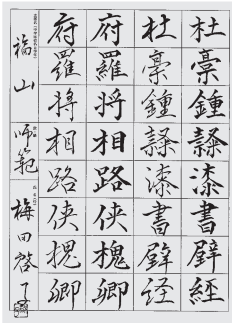 杜稾鍾隸漆書壁經
杜稾鍾隸漆書壁経
府羅将相路侠槐卿
府羅将相路侠槐卿
福山
師範
梅田啓